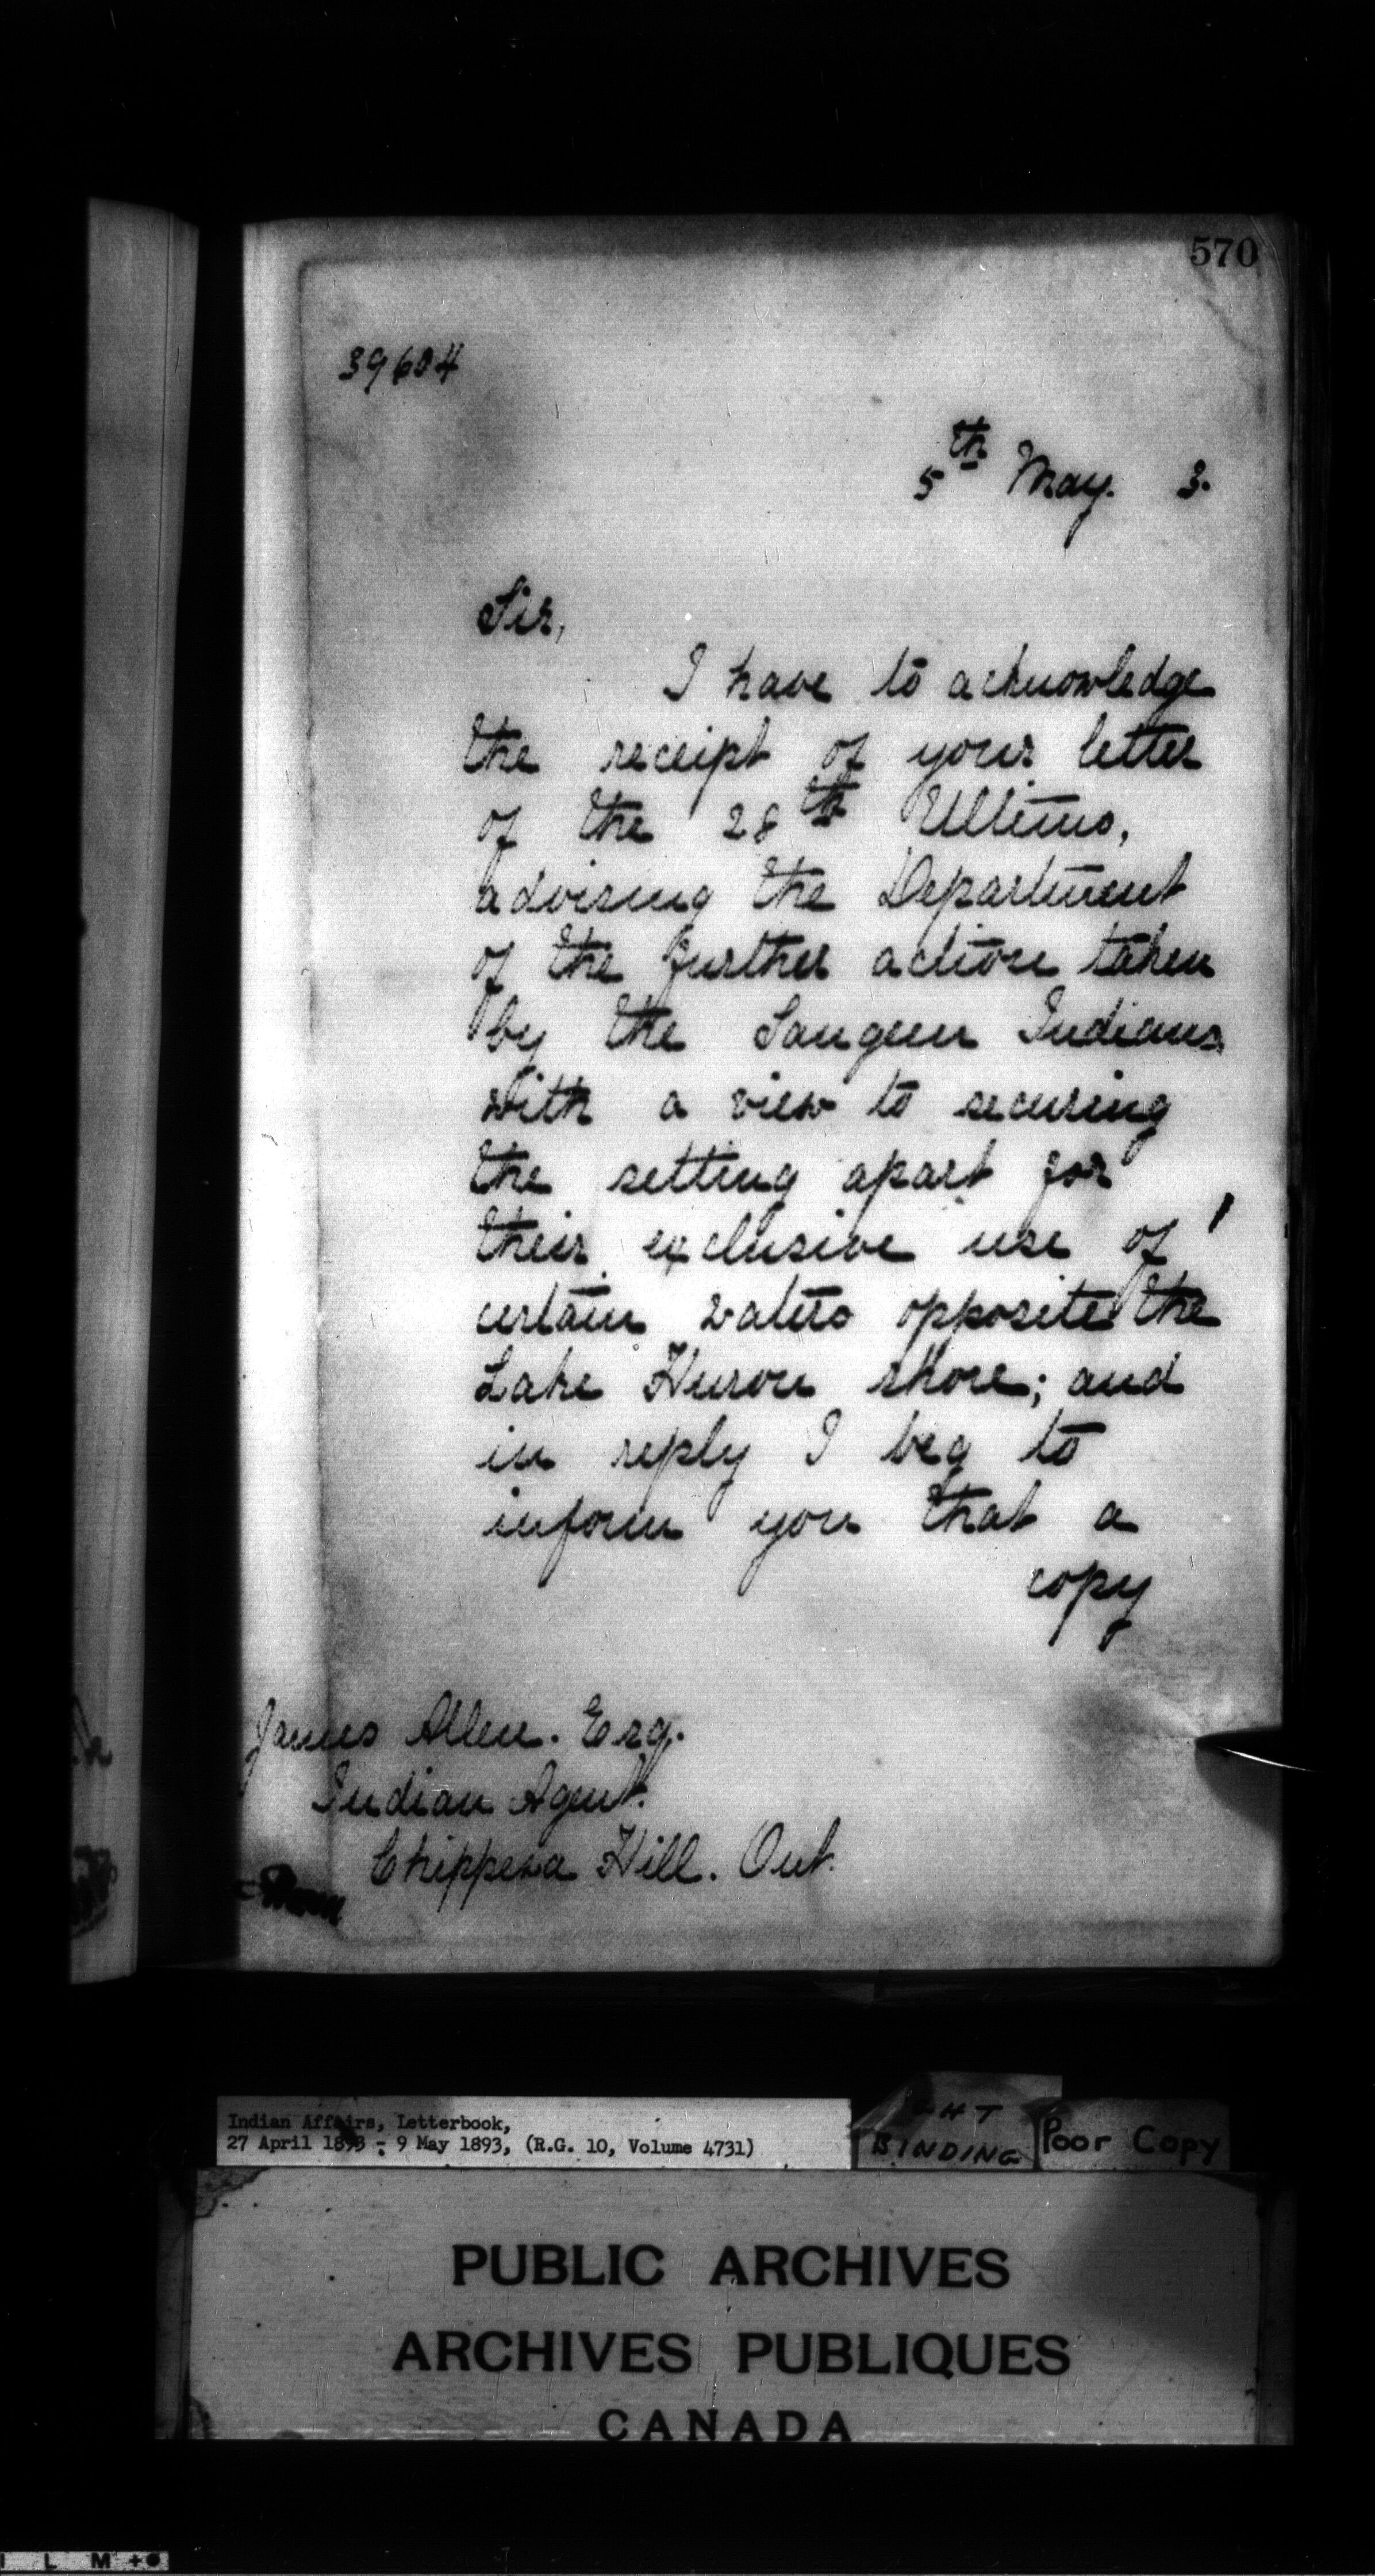 570
39604
5th May. 3.
Sir,
I have to acknowledge
the receipt of your letter
of the 28th Ultimo,
advising the Department
of the further action taken
by the Saugeen Indians
with a view to securing
the setting apart for
their exclusive use of
certain waters opposite the
Lake Huron shore; and
in reply I beg to
inform you that a
copy
James Allen. Esq.
Indian Agent.
Chippewa Hill. Ont.
Indian Affairs, Letterbook,
27 April 1893 - 9 May 1893, (R.G. 10, Volume 4731)
BINDING
Poor Copy
PUBLIC ARCHIVES
ARCHIVES PUBLIQUES
CANADA
L M